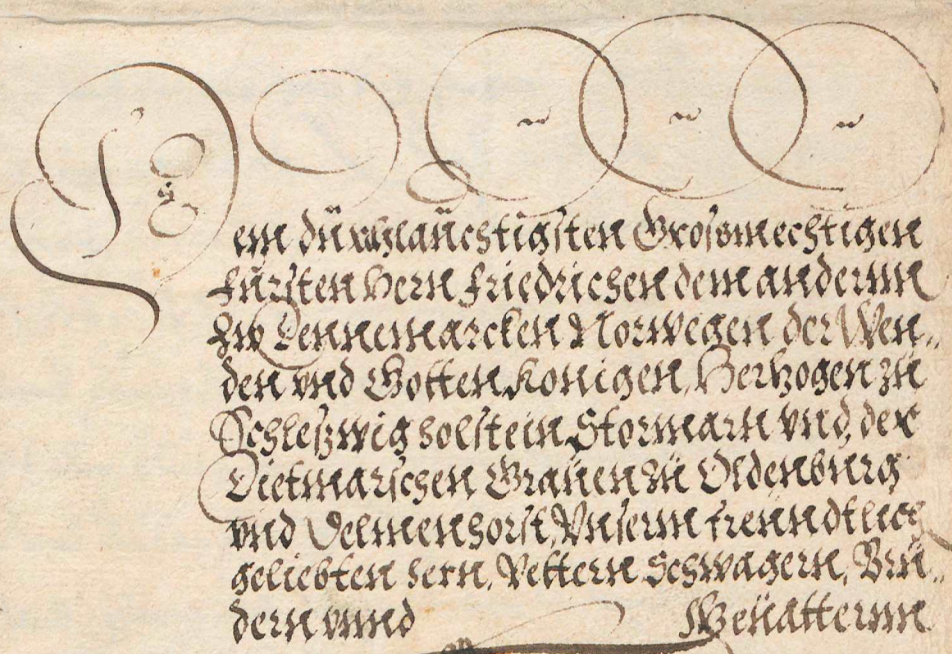 Dem dürchlaüchtigsten Grosmechtigen
Fursten Hern Friedrichen dem andernn
Zw Dennemarcken Norwegen der Wen-
den vnd Gotten Konigen, Hertzogen zu
Schleßwig holstein Stormarn vnd der
Dietmarschen Grauen zu Oldenburg
vnd Delmenhorst, Vnserm freundtlich
geliebten hern, Vettern Schwagern, Bru-
dern vnnd Geuatternn